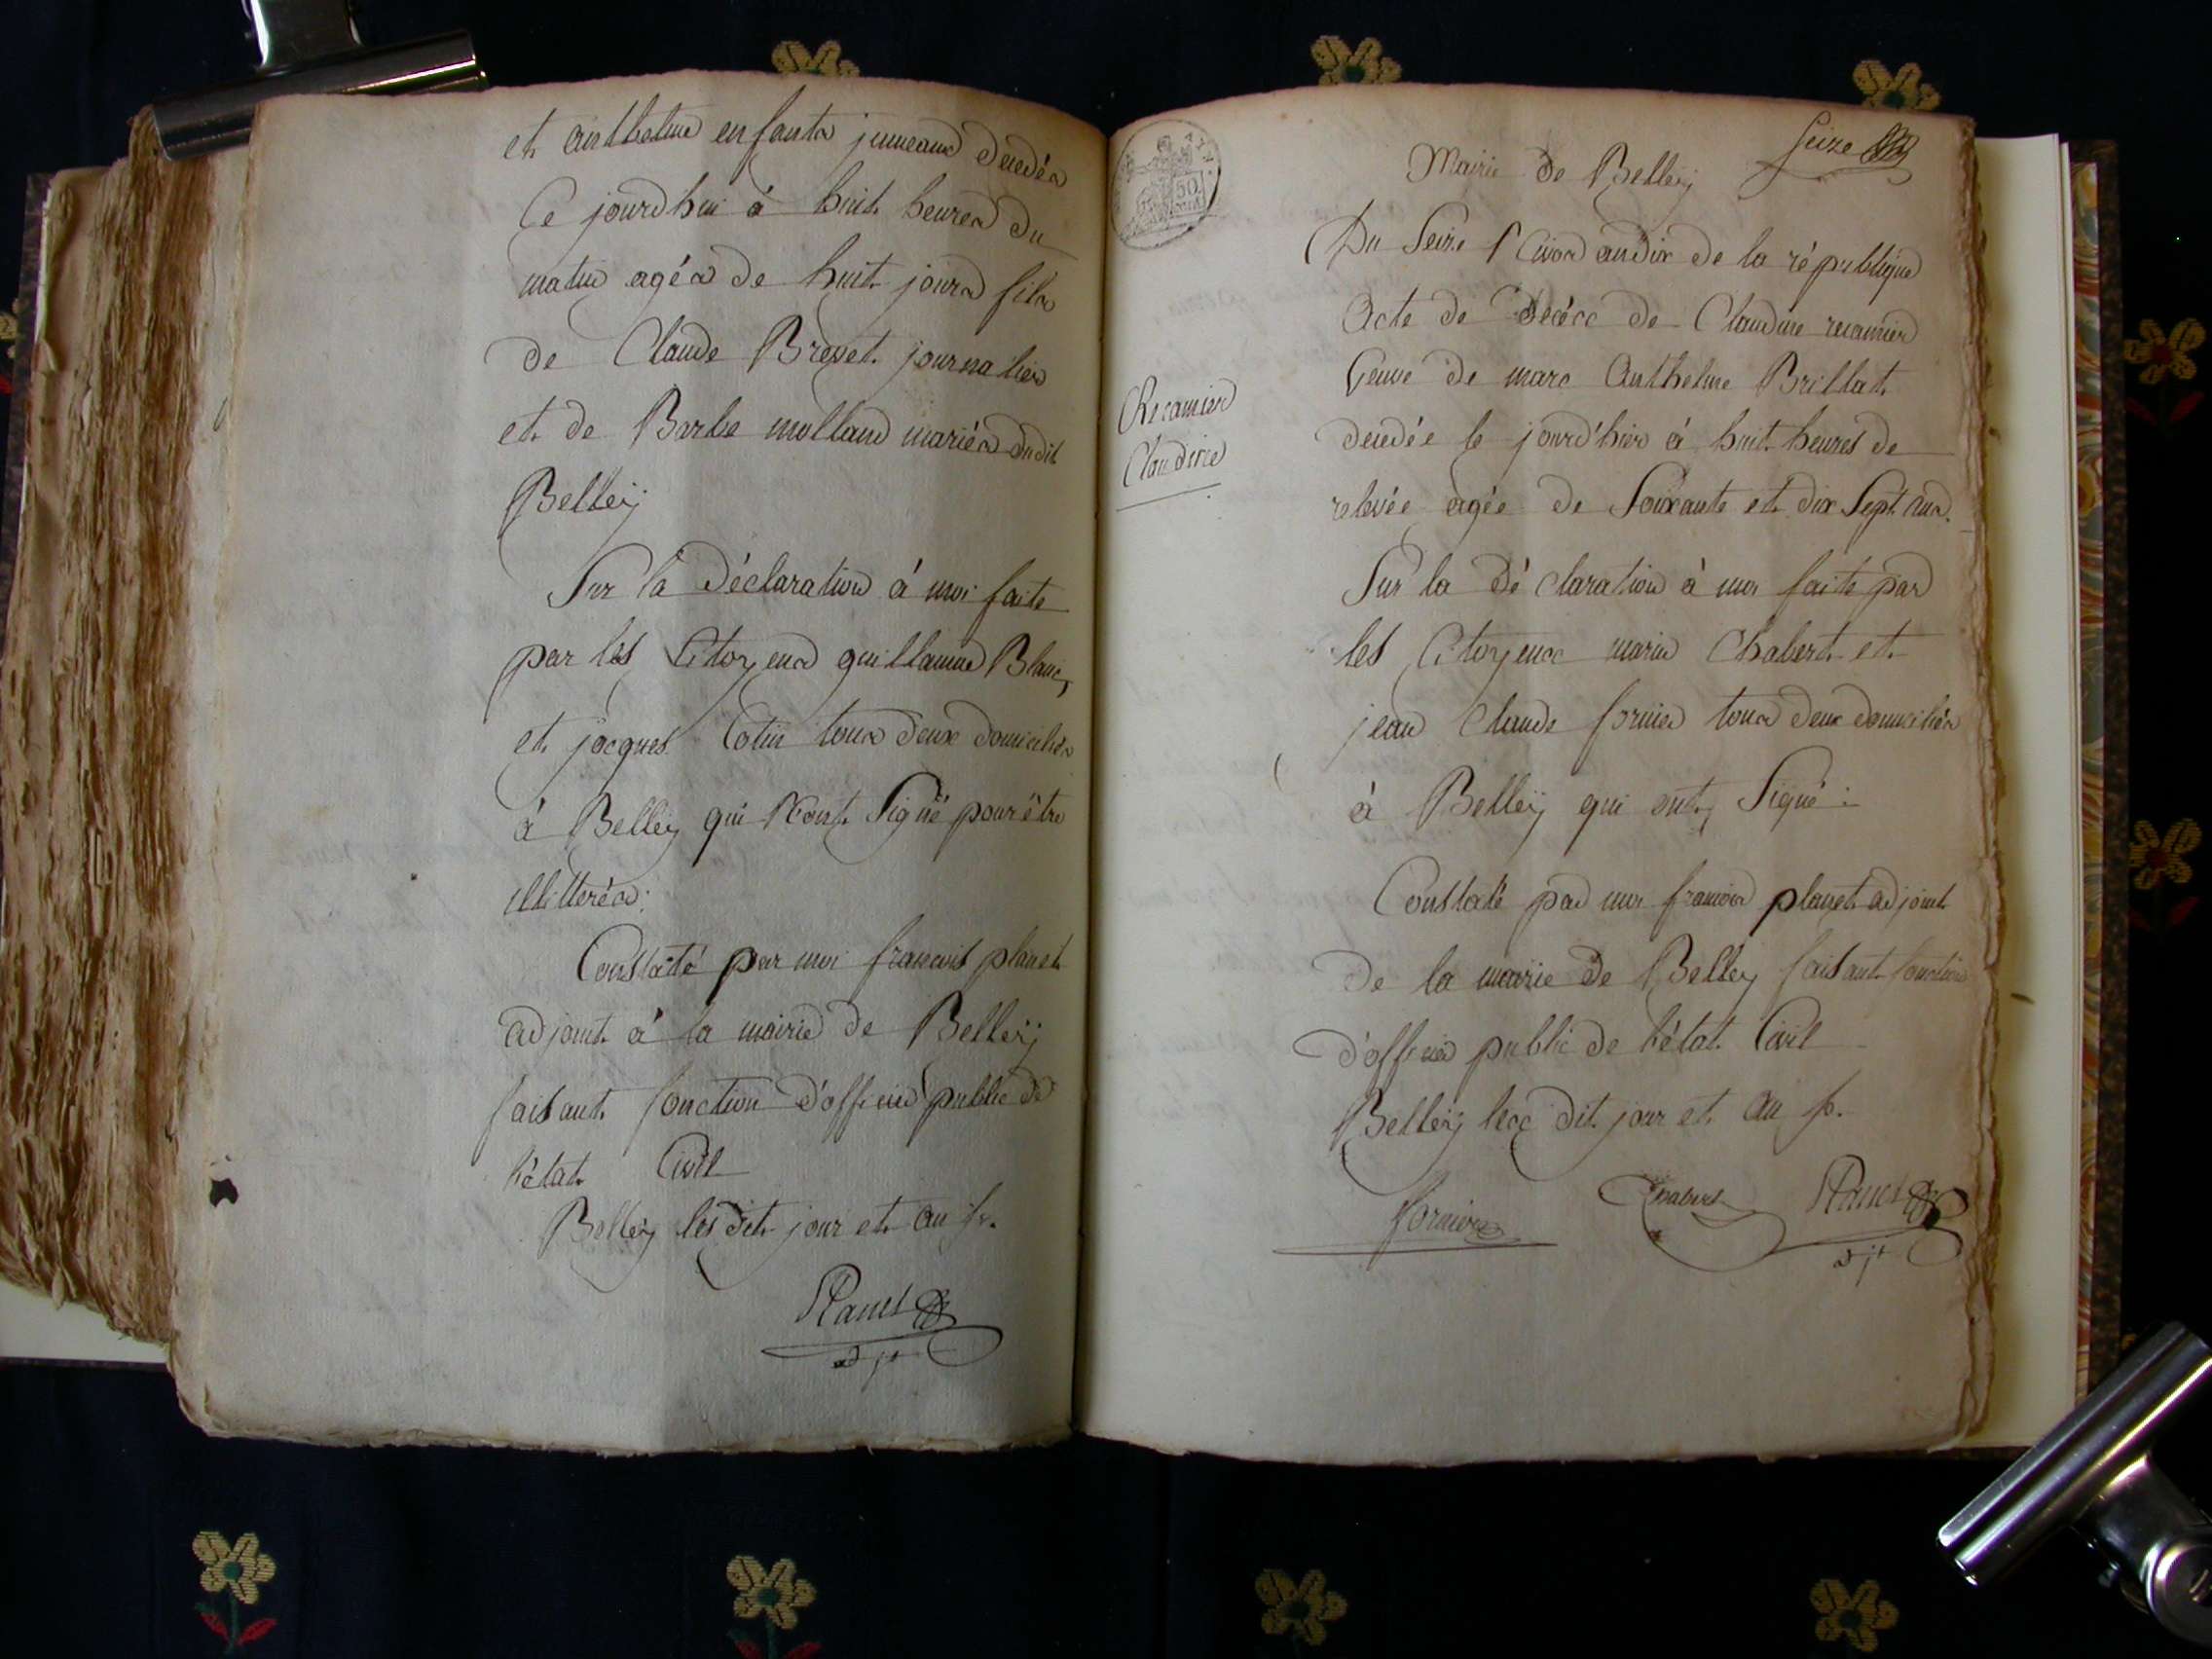 et anthelme enfants jumeaux decedés
Ce jourd'hui à huit heures du
matin agés de huit jours fils
de Claude Brevet journalier
et de Barbe mollard mariés dudit
Belleÿ
Sur la déclaration à moi faite
par les Citoyens guillaume Blanc,
et jacques Cotin tous deux domiciliés
à Belleÿ qui N'ont Signé pour être
illitterés:
Constaté par moi francois planet
adjoint à la mairie de Belleÿ
faisant fonction d'officier public de
l'état Civil
Belleÿ lesdit jour et an fr.
Planet
adjt
Seize
Mairie de Belleÿ
Du Seize Nivos an dix de la république
Acte de Décéc de Claudine recamier
Veuve de marc Anthelme Brillat
decedée le jourd'hier à huit heures de
relevée agée de Soixante et dix Sept ans.
Recamier
Claudine
Sur la dé claration à moi faite par
les Citoyens marin Chabert et
jean Claude fornier tous deux domiciliés
à Belleÿ qui ont Signé:
Constaté par moi francois planet adjoint
de la mairie de Belleÿ faisant fonction
d'officier public de l'état Civil
Belleÿ les dit jour et an fr.
fornier
Chabert
Planet
adjt
50